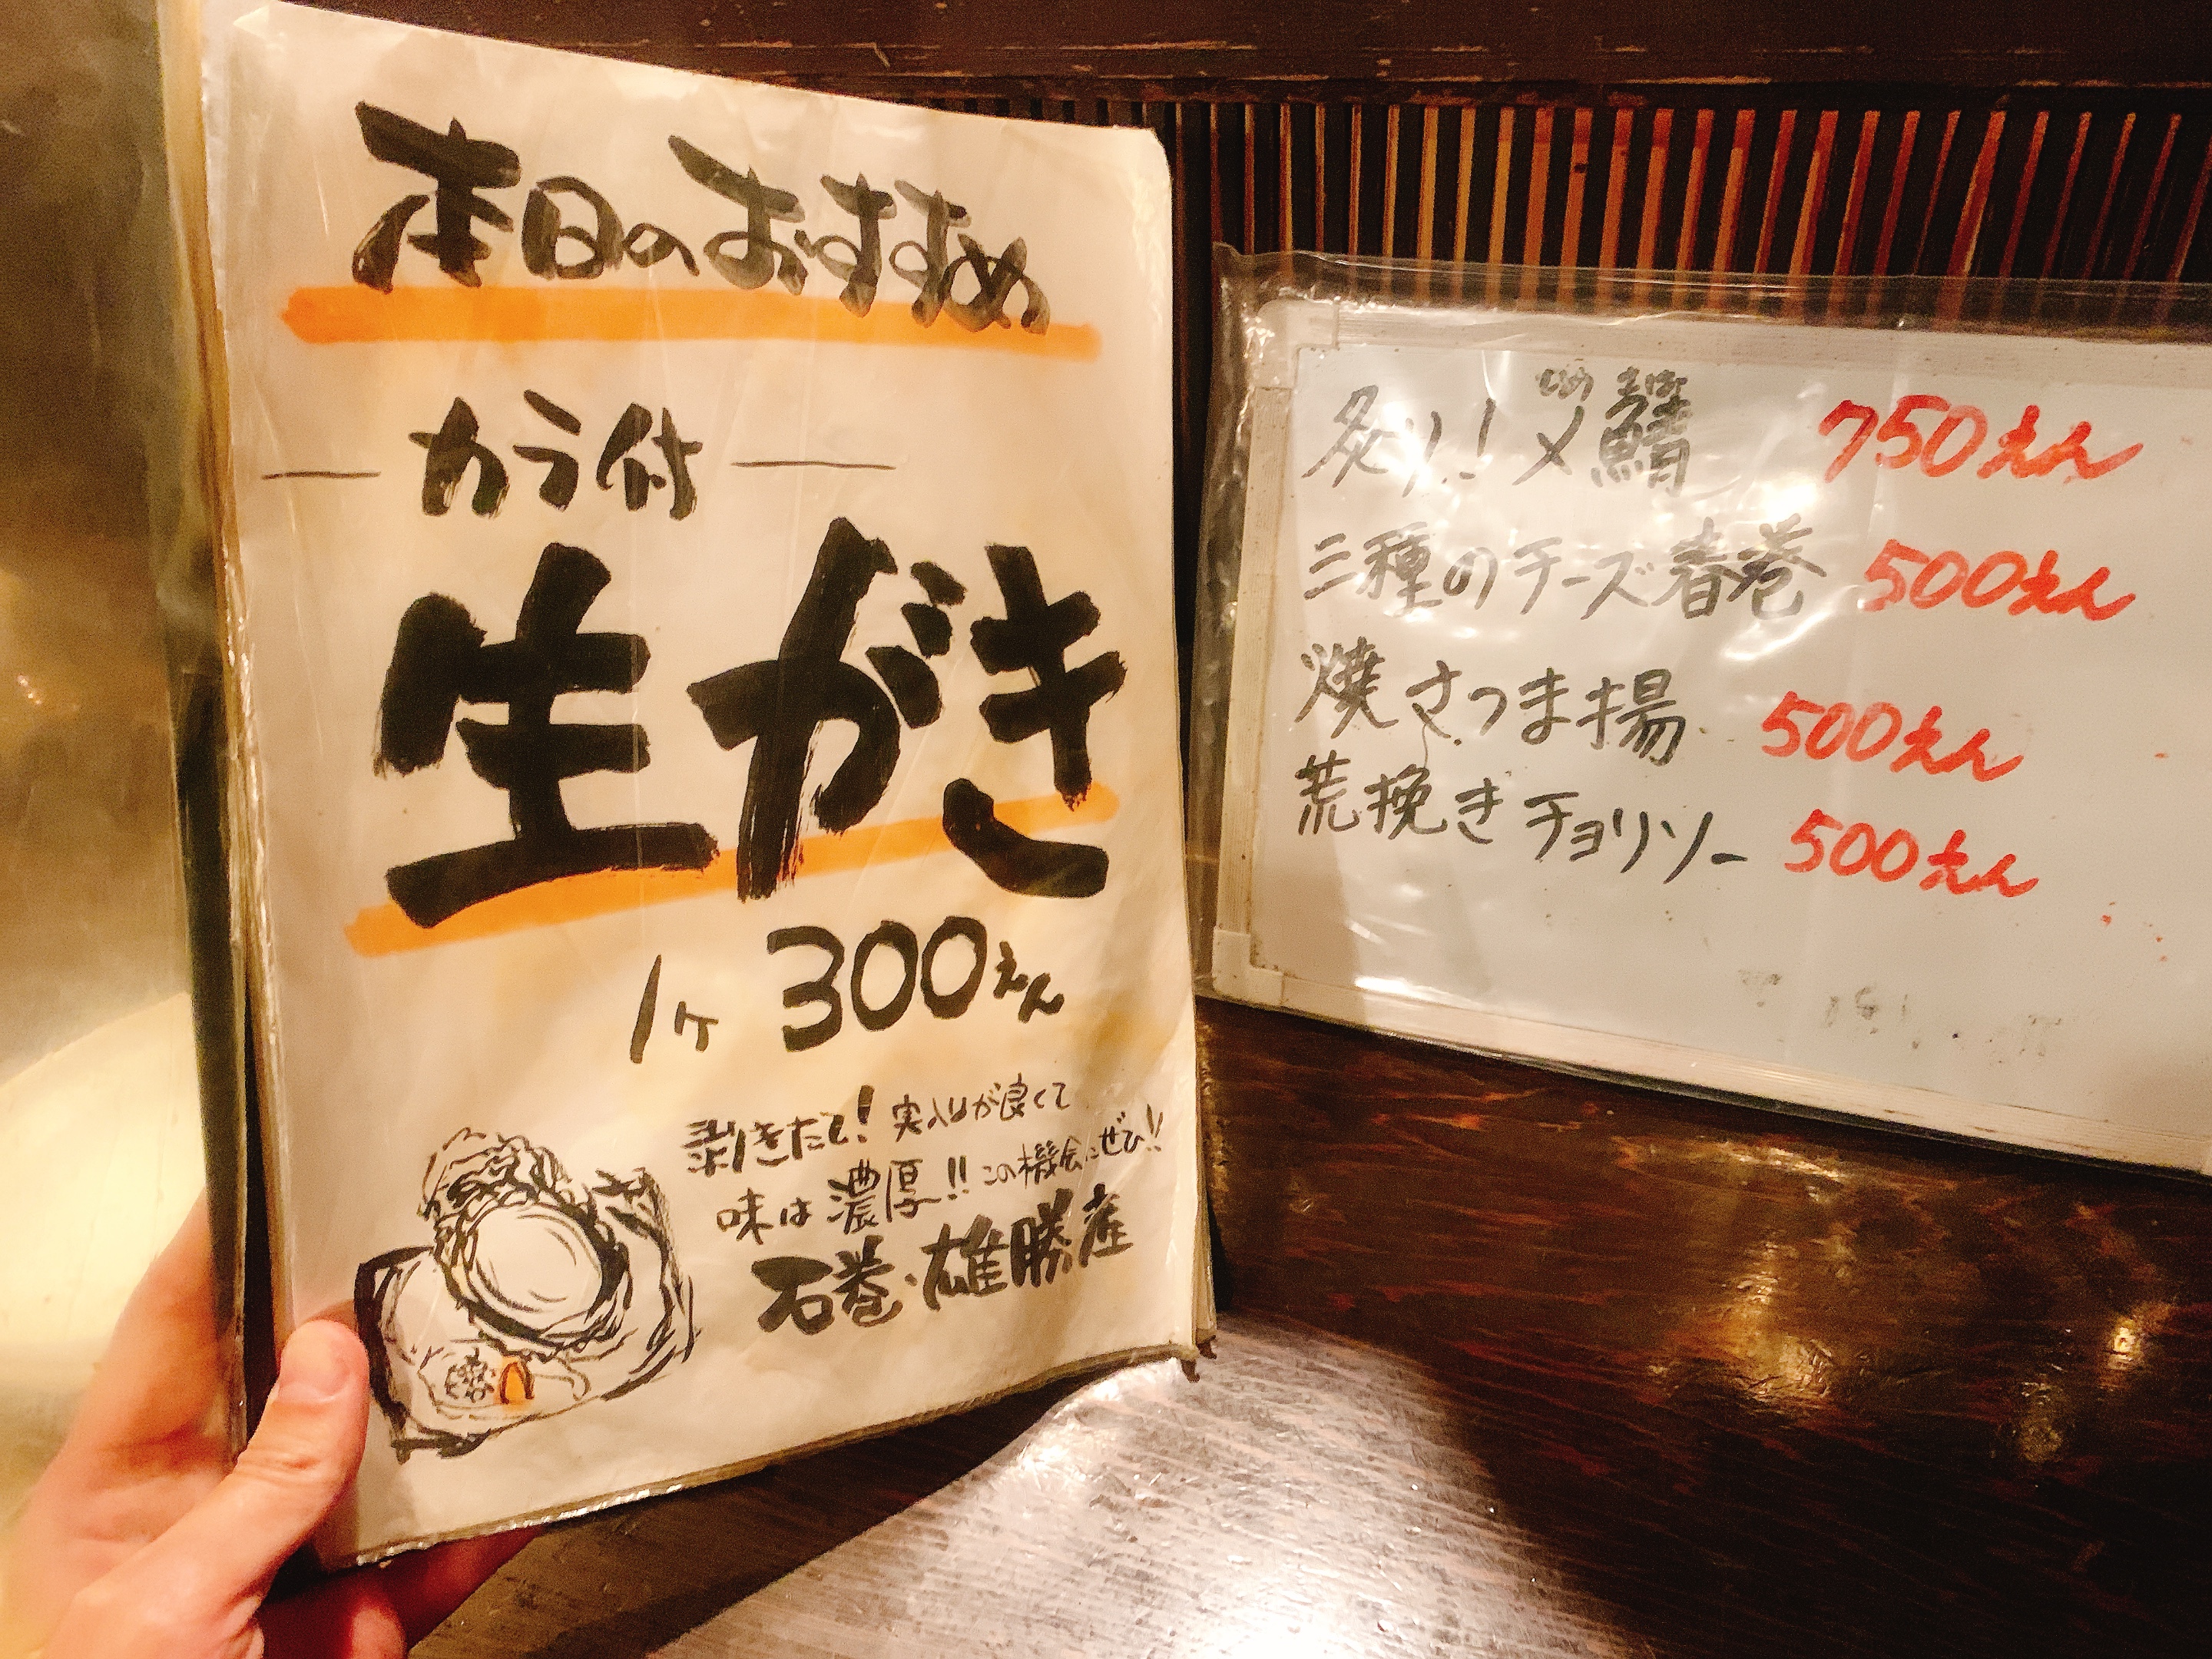 本日のおすすめ
カラ付
生がき
1ヶ 300えん
剥きたて! 実入りが良くて
味は濃厚!! この機会にぜひ!!
石巻・雄勝産
炙り! 〆鯖 750えん
三種のチーズ春巻 500えん
焼さつま揚 500えん
荒挽きチョリソー 500えん